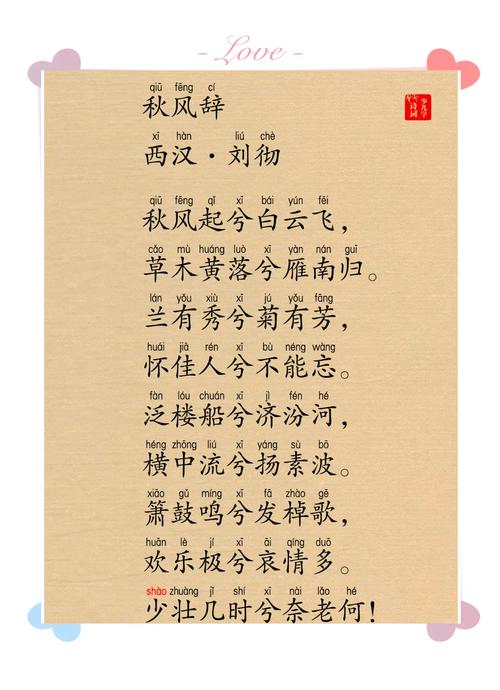 - Love -
qiū fēng cí
秋风辞
少儿学诗词
xī hàn liú chè
西汉·刘彻
qiū fēng qǐ xī bái yún fēi
秋风起兮白云飞，
cǎo mù huáng luò xī yàn nán guī
草木黄落兮雁南归。
lán yǒu xiù xī jú yǒu fāng
兰有秀兮菊有芳，
huái jiā rén xī bù néng wàng
怀佳人兮不能忘。
fàn lóu chuán xī jì fén hé
泛楼船兮济汾河，
héng zhōng liú xī yáng sù bō
横中流兮扬素波。
xiāo gǔ míng xī fā zhào gē
箫鼓鸣兮发棹歌，
huān lè jí xī āi qíng duō
欢乐极兮哀情多。
shào zhuàng jǐ shí xī nài lǎo hé
少壮几时兮奈老何！